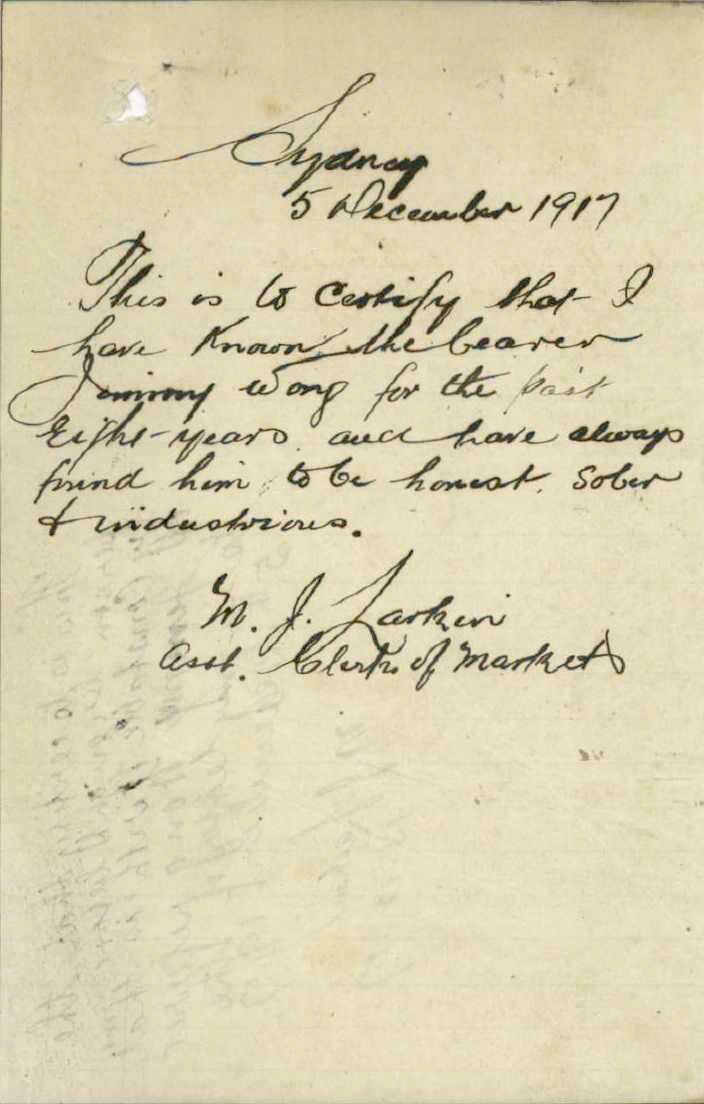 Sydney
5 December 1917
This is to certify that I
have known the bearer
Jimmy Wong for the past
Eight years and have always
found him to be honest. sober
& industrious.
M. J. Larkin
Asst. Clerk of Markets